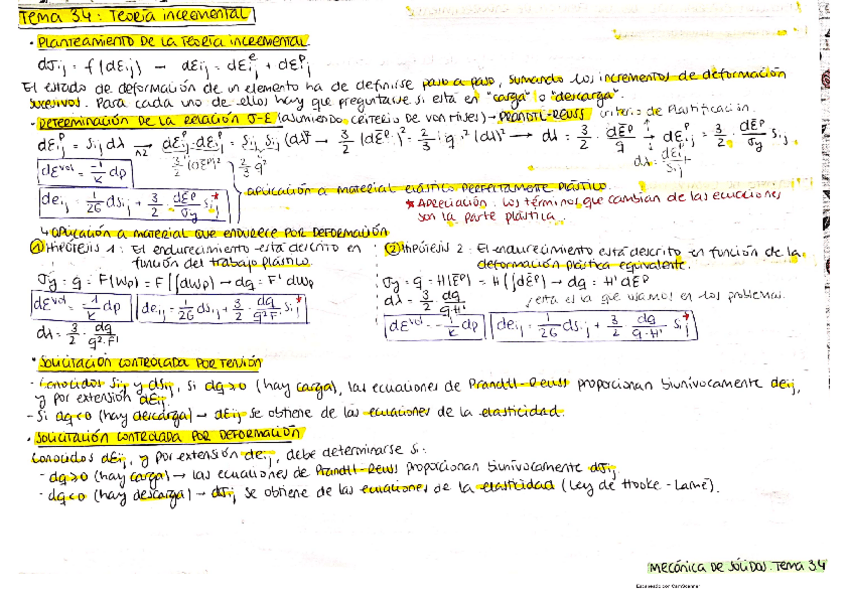 Tema 3.4: Teoría incremental
· Planteamiento de la teoría incremental
dσij = f(dεij) → dεij = dεij^e + dεij^p
El estado de deformación de un elemento ha de definirse paso a paso, sumando los incrementos de deformación
sucesivos. Para cada uno de ellos hay que preguntarse si está en "carga" o "descarga".
- Determinación de la relación σ-ε (asumiendo criterio de von Mises) - PRANDTL-REUSS criterio de plastificación.
dεij^p = Sij dλ → dεij^p · dεij^p = Sij Sij (dλ)² → 3/2 (dε̄^p)² = 2/3 · q² · (dλ)² → dλ = 3/2 · dε̄^p/q → dεij^p = 3/2 · dε̄^p/σy Sij
3/2 (dε̄^p)² 2/3 q² dλ = dεij^p/Sij
dε^vol = -1/K dp
aplicación a material elástico perfectamente plástico.
deij = 1/2G dSij + 3/2 dε̄^p/σy Sij*
* Apreciación: los términos que cambian de las ecuaciones
son la parte plástica.
↳ aplicación a material que endurece por deformación
① Hipótesis 1: El endurecimiento está descrito en
función del trabajo plástico.
σy = q = F(Wp) = F(∫dWp) → dq = F' dWp
dε^vol = -1/K dp deij = 1/2G dSij + 3/2 dq/q²F' Sij*
dλ = 3/2 · dq/q²·F'
② Hipótesis 2: El endurecimiento está descrito en función de la
deformación plástica equivalente.
σy = q = H(ε̄^p) = H(∫dε̄^p) → dq = H' dε̄^p
dλ = 3/2 dq/q·H' esta es la que usamos en los problemas.
dε^vol = -1/K dp deij = 1/2G dSij + 3/2 dq/q·H' Sij*
· Solicitación controlada por tensión
- Conocidos Sij y dSij, si dq>0 (hay carga), las ecuaciones de Prandtl-Reuss proporcionan biunívocamente deij,
y por extensión dεij.
- Si dq<0 (hay descarga) → dεij se obtiene de las ecuaciones de la elasticidad.
· Solicitación controlada por deformación
Conocidos dεij, y por extensión deij, debe determinarse si:
- dq>0 (hay carga) → las ecuaciones de Prandtl-Reuss proporcionan biunívocamente dσij.
- dq<0 (hay descarga) → dσij se obtiene de las ecuaciones de la elasticidad (Ley de Hooke-Lamé).
MECÁNICA DE SÓLIDOS. Tema 3.4
Escaneado con CamScanner